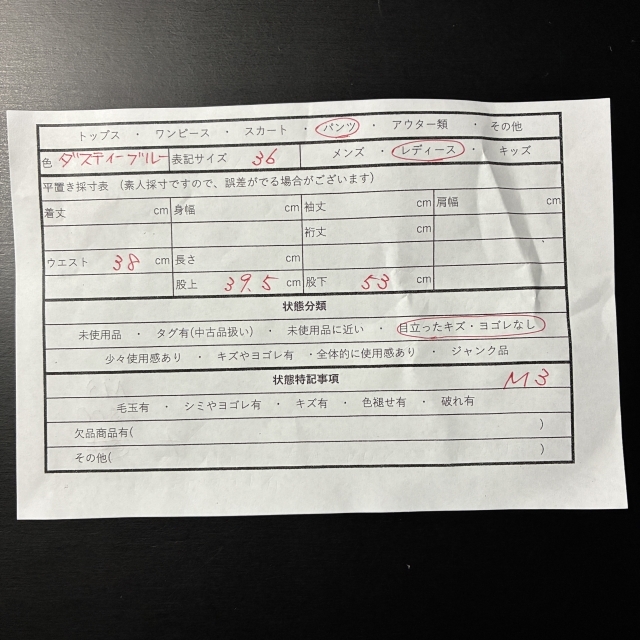 トップス ・ ワンピース ・ スカート ・ パンツ ・ アウター類 ・ その他
色 ダスティーブルー 表記サイズ 36 メンズ ・ レディース ・ キッズ
平置き採寸表 （素人採寸ですので、誤差がでる場合がございます）
着丈 cm 身幅 cm 袖丈 cm 肩幅 cm
裄丈 cm
ウエスト 38 cm 長さ cm
股上 39.5 cm 股下 53 cm
状態分類
未使用品 ・ タグ有(中古品扱い) ・ 未使用品に近い ・ 目立ったキズ・ヨゴレなし
少々使用感あり ・ キズやヨゴレ有 ・全体的に使用感あり ・ ジャンク品
状態特記事項 M3
毛玉有 ・ シミやヨゴレ有 ・ キズ有 ・ 色褪せ有 ・ 破れ有
欠品商品有( )
その他( )